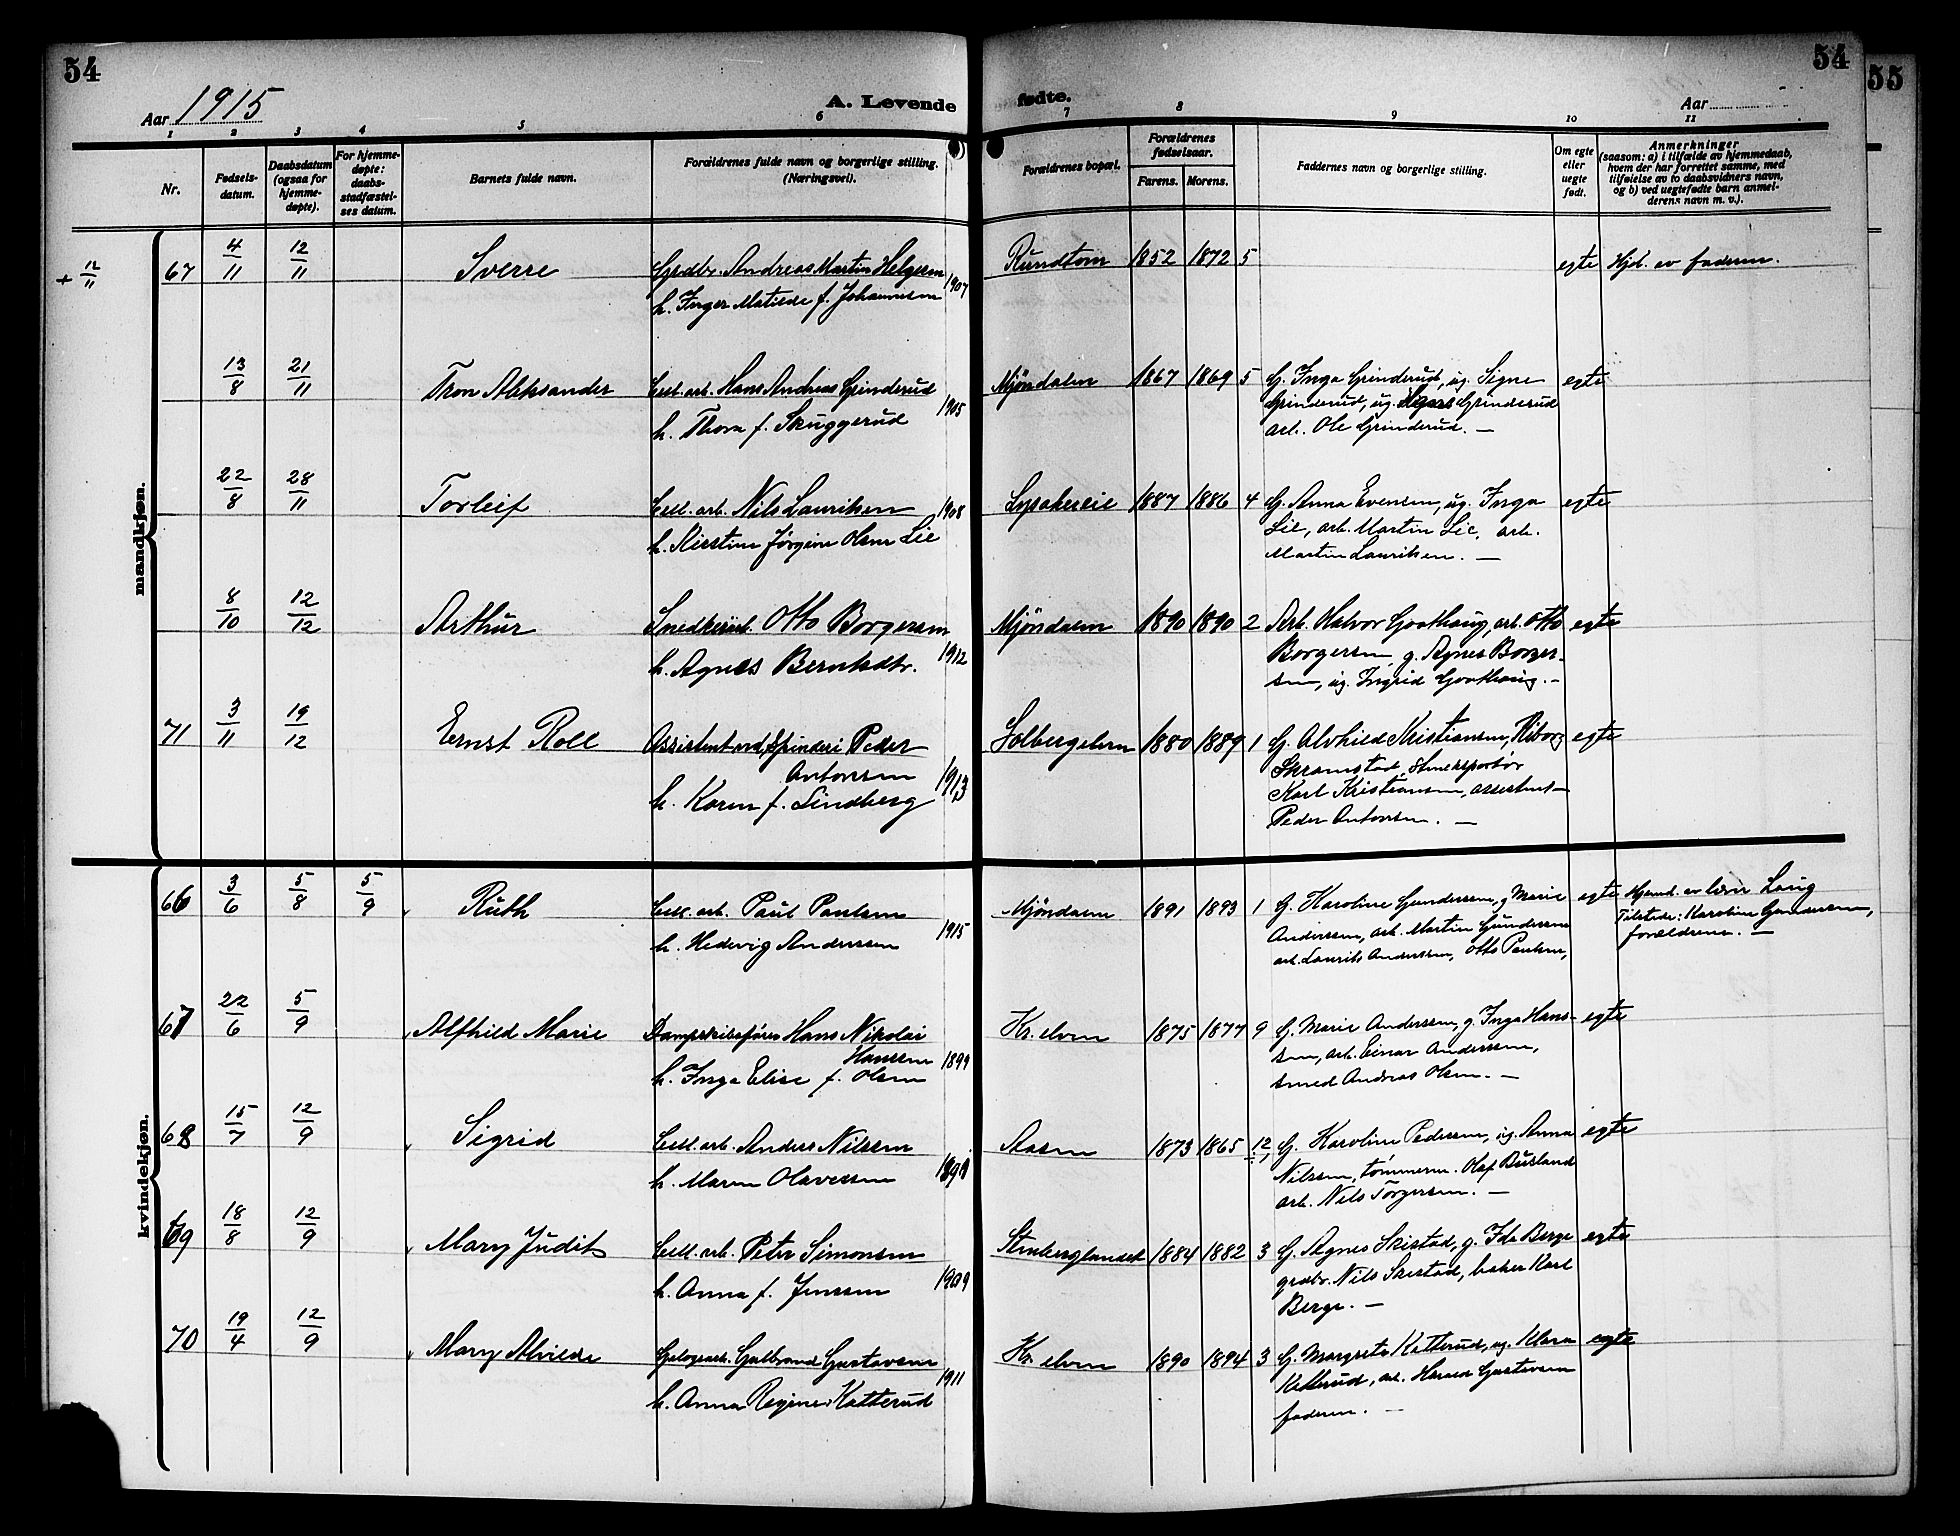 54
Aar 1915
A. Levende
fødte.
Aar
54
55
1 2 3 4 5 6 7 8 9 10 11
Nr.
Fødsels-
datum.
Daabsdatum
(ogsaa for
hjemme-
døpte).
For hjemme-
døpte:
daabs-
stadfæstel-
ses datum.
Barnets fulde navn.
Forældrenes fulde navn og borgerlige stilling.
(Næringsvei).
Forældrenes bopæl.
Forældrenes
fødselsaar.
Farens. Morens.
Faddernes navn og borgerlige stilling.
Om egte
eller
uegte
født.
Anmerkninger
(saasom: a) i tilfælde av hjemmedaab,
hvem der har forrettet samme, med
tilføielse av to daabsvidners navn,
og b) ved uegtefødte barn anmel-
derens navn m. v.).
mandkjøn.
+ 12/11
67 4/11 12/11 Sverre
Grdbr. Andreas Martin Helgesen
h. Inger Matilde f. Johannesen 1907
Rundtom 1852 1872 5
egte Hjd. av faderen.
13/8 21/11 Tron Aleksander
Cell. arb. Hans Andreas Grinderud
h. Thora f. Skuggerud 1905
Mjøndalen 1867 1869 5
G. Inga Grinderud, ug. Signe
Grinderud, ug. Grinderud
arb. Ole Grinderud. —
egte
22/8 28/11 Torleif
Cell. arb. Nils Lauritsen 1908
h. Kirstine Jørgine Olsen Lie
1887 1886 4
G. Anna Evensen, ug. Inga
Lie, arb. Martin Lie, arb.
Martin Lauritsen. —
egte
8/10 12/12 Arthur
Snedkerarb. Otto Borgersen
h. Agnes Berntsdtr. 1912
Mjøndalen 1890 1890 2
Arb. Halvor Goothaug, arb. Otto
Borgersen, g. Agnes Borger-
sen, ug. Ingrid Goothaug. —
egte
71 3/11 19/12 Ernst Roll
Assistent ved Spinderi Peder
Antonsen
h. Karen f. Lindberg 1913
Solbergelven 1880 1889 1
G. Alvhild Kristiansen, Viborg
Skramstad,
Karl Kristiansen, assistent
Peder Antonsen. —
egte
kvindekjøn.
66 3/6 5/8 5/9 Ruth
Cell. arb. Paul Paulsen
h. Hedevig Andersen 1915
Mjøndalen 1891 1893 1
G. Karoline Gundersen, g. Marie
Andersen, arb. Martin Gundersen
arb. Laurits Andersen, Otto Paulsen,
egte Hjemd. av lærer Laug
Tilstede: Karoline Gundersen,
forældrene. —
67 22/6 5/9 Alfhild Marie
Dampskibsfører Hans Nikolai
Hansen
h. Inga Elise f. Olsen 1899
Kr. elven 1875 1877 9
G. Marie Andersen, g. Inga Han-
sen, arb. Einar Andersen,
smed Andreas Olsen. —
egte
68 15/7 12/9 Sigrid
Cell. arb. Anders Nilssen
h. Maren Olavesen
Aasen 1873 1865 12
G. Karoline Pedersen, ug. Anna
Nilssen, tømmerm. Olaf Busland
arb. Nils Torgersen. —
egte
69 18/8 12/9 Mary Judit
Cell. arb. Peter Simonsen
h. Anna f. Jenssen 1909
Stenberglandet 1884 1882 3
G. Agnes Skistad, g. Ida Berge
grdbr. Nils Skistad, baker Karl
Berge. —
egte
70 19/4 12/9 Mary Alvilde
Gulbrand Gustavsen
h. Anna Regine Katterud 1911
Kr. elven 1890 1894 3
G. Margrete Katterud, ug. Klara
Katterud, arb. Harald Gustavsen
faderen. —
egte